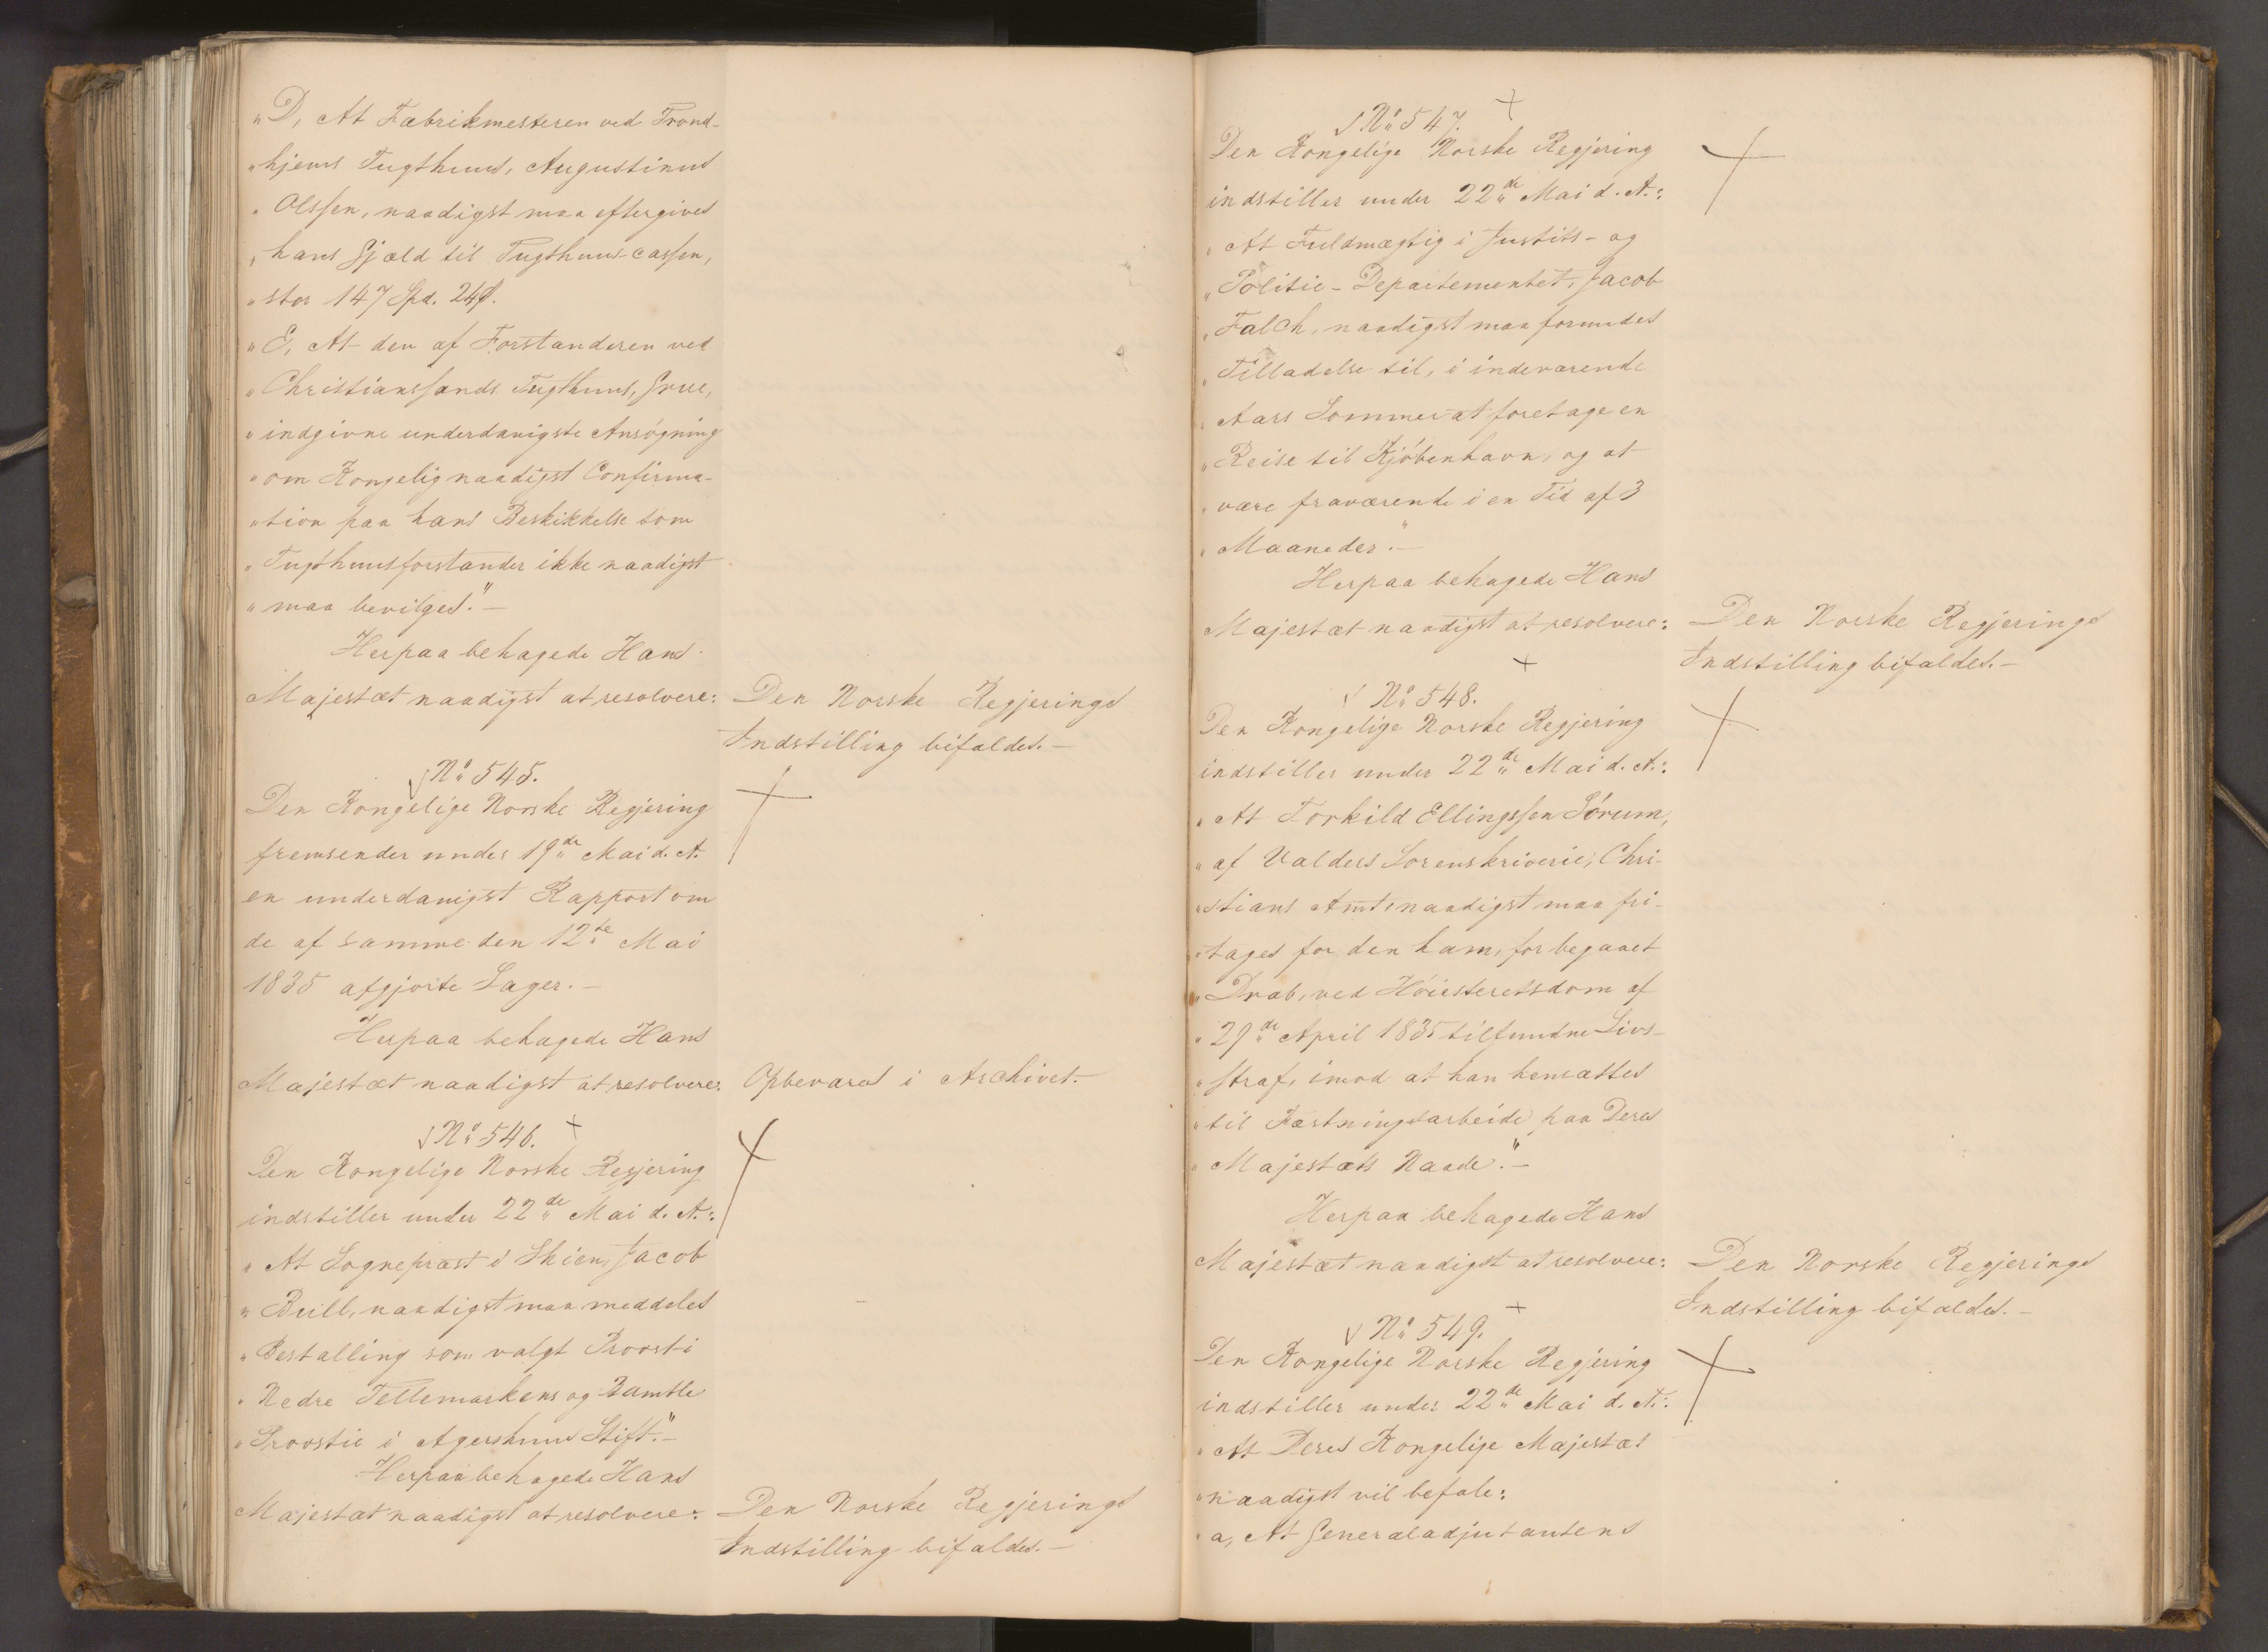 „D, At Fabrikmesteren ved Trond-
„hjems Tugthuus, Augustinus
„Olssen, naadigst maa eftergives
„hans Gjæld til Tugthuus-cassen,
„stor 147 Spd. 24ß.
„E, At den af Forstanderen ved
„Christianssands Tugthuus, Grue,
„indgivne underdanigste Ansøgning
„om Kongelig naadigst Confirma-
„tion paa hans Beskikkelse som
„Tugthuusforstander ikke naadigst
„maa bevilges."-
Herpaa behagede Hans
Majestæt naadigst at resolvere:
Den Norske Regjerings
Indstilling bifaldes.-
No 545.
Den Kongelige Norske Regjering
fremsender under 19de Mai d. A.
en underdanigst Rapport om
de af samme den 12te Mai
1835 afgjorte Sager.-
Herpaa behagede Hans
Majestæt naadigst at resolvere:
Opbevares i Archivet.-
No 546.
Den Kongelige Norske Regjering
indstiller under 22de Mai d. A.:
„At Sognepræst i Skien, Jacob
„Bull, naadigst maa meddeles
„Bestalling som valgt Provst i
„Nedre Tellemarkens og Bamble
„Provstie i Agershuus Stift."-
Herpaa behagede Hans
Majestæt naadigst at resolvere:
Den Norske Regjerings
Indstilling bifaldes.-
No 547.
Den Kongelige Norske Regjering
indstiller under 22de Mai d. A.:
„At Fuldmægtig i Justits- og
„Politie-Departementet, Jacob
„Falch, naadigst maa forundes
„Tilladelse til, i indeværende
„Aars Sommer at foretage en
„Reise til Kjøbenhavn, og at
„være fraværende i en Tid af 3
„Maaneder."-
Herpaa behagede Hans
Majestæt naadigst at resolvere:
Den Norske Regjerings
Indstilling bifaldes.-
No 548.
Den Kongelige Norske Regjering
indstiller under 22de Mai d. A.:
„At Torkild Ellingssen Sørum,
„af Valders Sorenskriverie, Chri-
„stians Amt, naadigst maa fri-
„tages for den ham, for begaaet
„Drab, ved Høiesteretsdom af
„29de April 1835 tilfundne Livs-
„straf, imod at han hensættes
„til Fæstningsarbeide paa Deres
„Majestæts Naade."-
Herpaa behagede Hans
Majestæt naadigst at resolvere:
Den Norske Regjerings
Indstilling bifaldes.-
No 549.
Den Kongelige Norske Regjering
indstiller under 22de Mai d. A.:
„At Deres Kongelige Majestæt
„naadigst vil befale:
„a, At Generaladjutantens